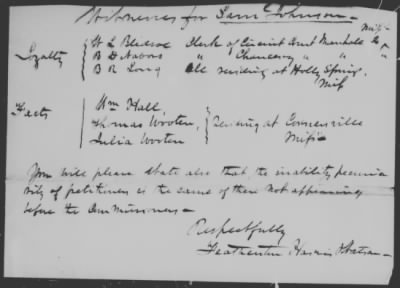 Witnesses for Saml Johnson —
Loyalty
H L Bledsoe Clerk of Circuit Court Marshall Co Missi
B D Nabors " " Chancery " " "
B R Long All residing at Holly Springs,
Miss
Facts
Wm Hall
Thomas Wooten,
Julia Wooten
Residing at
Missi —
You will please state also that, the inability pecunia
rily of petitioners is the cause of there not appearing
before the Commissioners —
Respectfully
Featherston Harris & Watson —